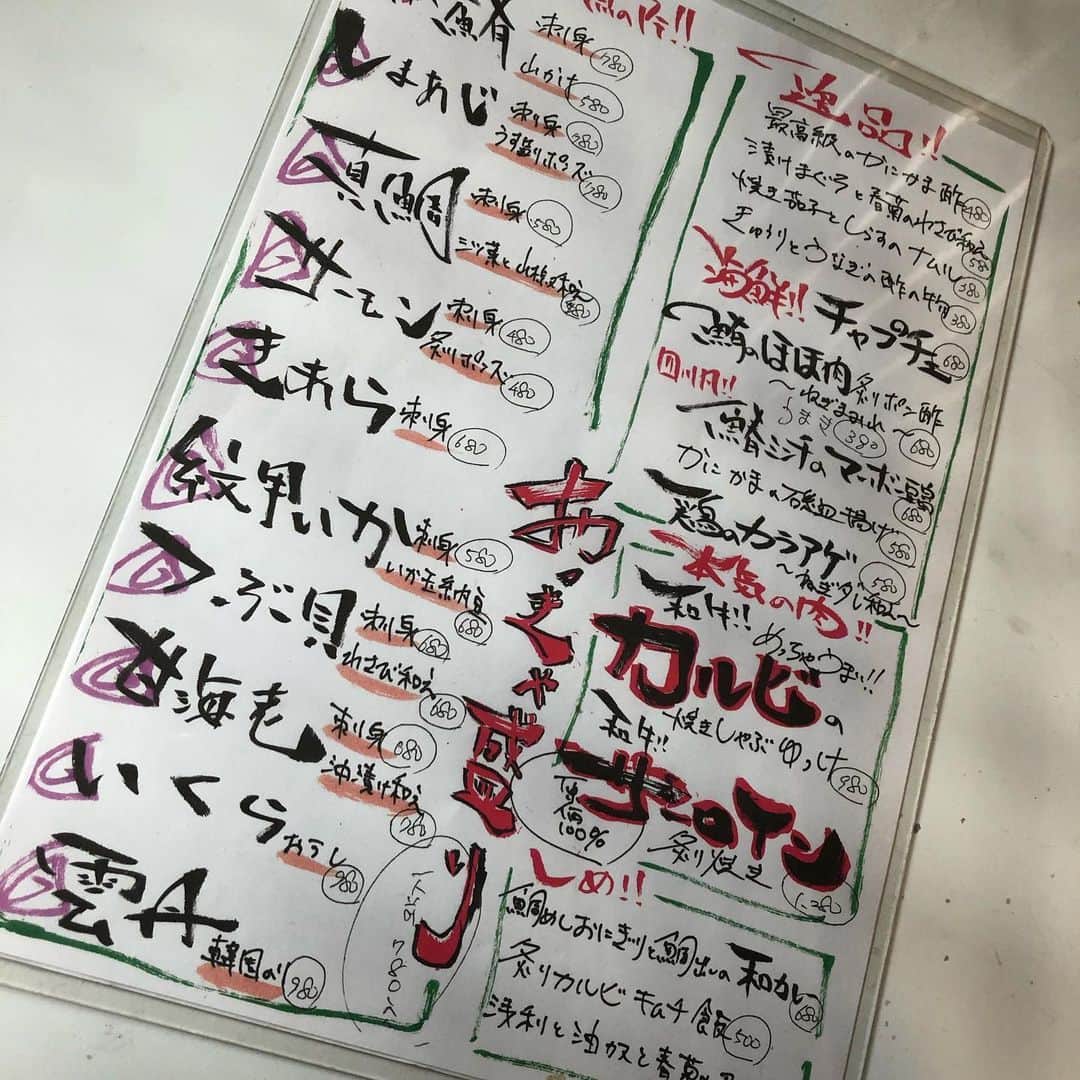 刺身 780
山かけ 580
しまあじ
刺身 780
うす盛りポンズ 780
真鯛
刺身 580
三ッ葉と山椒和え
サーモン
刺身 480
炙りポンズ 480
きあら
刺身 680
紋甲いか
刺身 580
いか玉納豆 680
つぶ貝
刺身 680
わさび和え 680
甘海老
刺身 680
油漬け和え 780
いくら
おろし 980
雲丹
韓国のり 980
おまかせ盛り
780
逸品!!
最高級のかにかま酢 480
漬けまぐろと春菊のわさび和え 580
焼き茄子としらすのナムル 380
きゅうりとうなぎの酢の物 380
海鮮!! チャプチェ 680
鮪のほほ肉 炙りポン酢
〜ねぎまみれ〜 680
うまき 380
四川風!!
鰆ミンチのマーボー豆腐 680
かにかまの磯辺揚げ 580
鶏のカラアゲ 580
〜ねぎダレ和え〜
本気の肉!!
和牛!! めっちゃうまい!!
カルビの
焼きしゃぶゆっけ 980
和牛!!
サーロイン
炙り焼き 1,280
100%
しめ!!
鯛めしおにぎりと鯛出しの和カレー 680
炙りカルビキムチ飯 500
浅利と油カスと春菊の